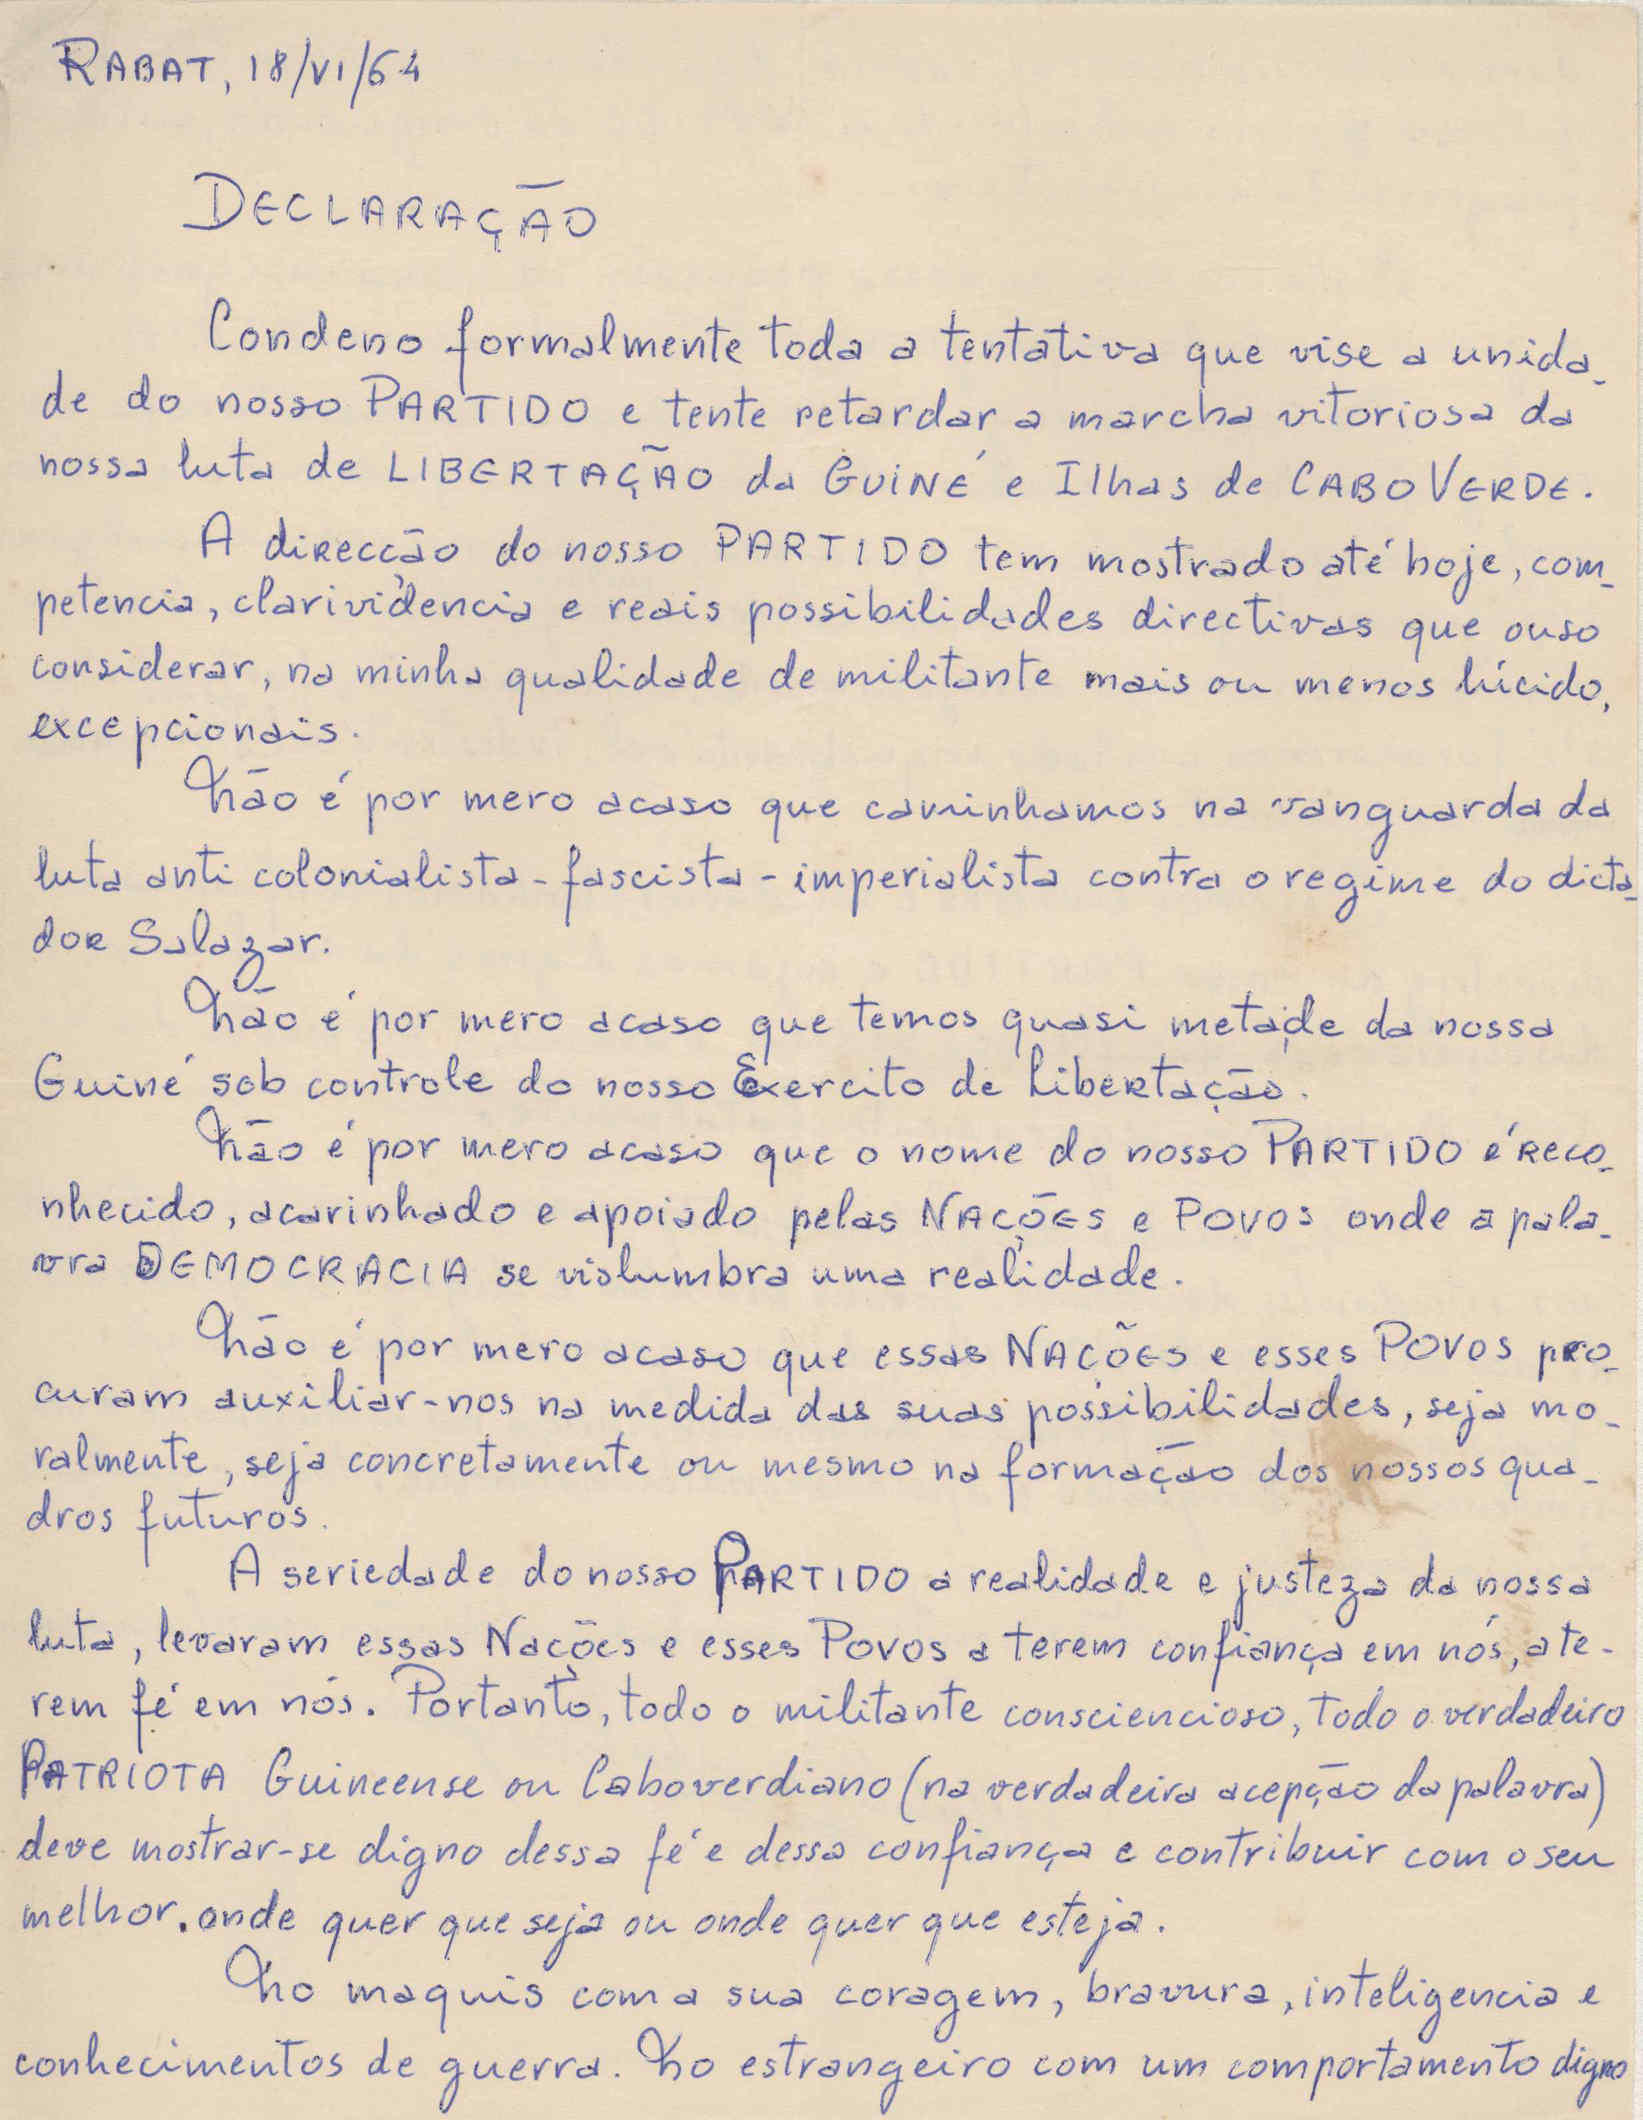 RABAT, 18/VI/64
DECLARAÇÃO
Condeno formalmente toda a tentativa que vise a unida-
de do nosso PARTIDO e tente retardar a marcha vitoriosa da
nossa luta de LIBERTAÇÃO da GUINÉ e Ilhas de CABO VERDE.
A direcção do nosso PARTIDO tem mostrado até hoje, com-
petencia, clarividencia e reais possibilidades directivas que ouso
considerar, na minha qualidade de militante mais ou menos lúcido,
excepcionais.
Não é por mero acaso que caminhamos na vanguarda da
luta anti colonialista-fascista-imperialista contra o regime do dicta-
dor Salazar.
Não é por mero acaso que temos quasi metade da nossa
Guiné sob controle do nosso Exercito de Libertação.
Não é por mero acaso que o nome do nosso PARTIDO é reco-
nhecido, acarinhado e apoiado pelas NAÇÕES e POVOS onde a pala-
vra DEMOCRACIA se vislumbra uma realidade.
Não é por mero acaso que essas NAÇÕES e esses POVOS pro-
curam auxiliar-nos na medida das suas possibilidades, seja mo-
ralmente, seja concretamente ou mesmo na formação dos nossos qua-
dros futuros.
A seriedade do nosso PARTIDO a realidade e justeza da nossa
luta, levaram essas Nações e esses Povos a terem confiança em nós, a te-
rem fé em nós. Portanto, todo o militante consciencioso, todo o verdadeiro
PATRIOTA Guineense ou Caboverdiano (na verdadeira acepção da palavra)
deve mostrar-se digno dessa fé e dessa confiança e contribuir com o seu
melhor. onde quer que seja ou onde quer que esteja.
No maquis com a sua coragem, bravura, inteligencia e
conhecimentos de guerra. No estrangeiro com um comportamento digno